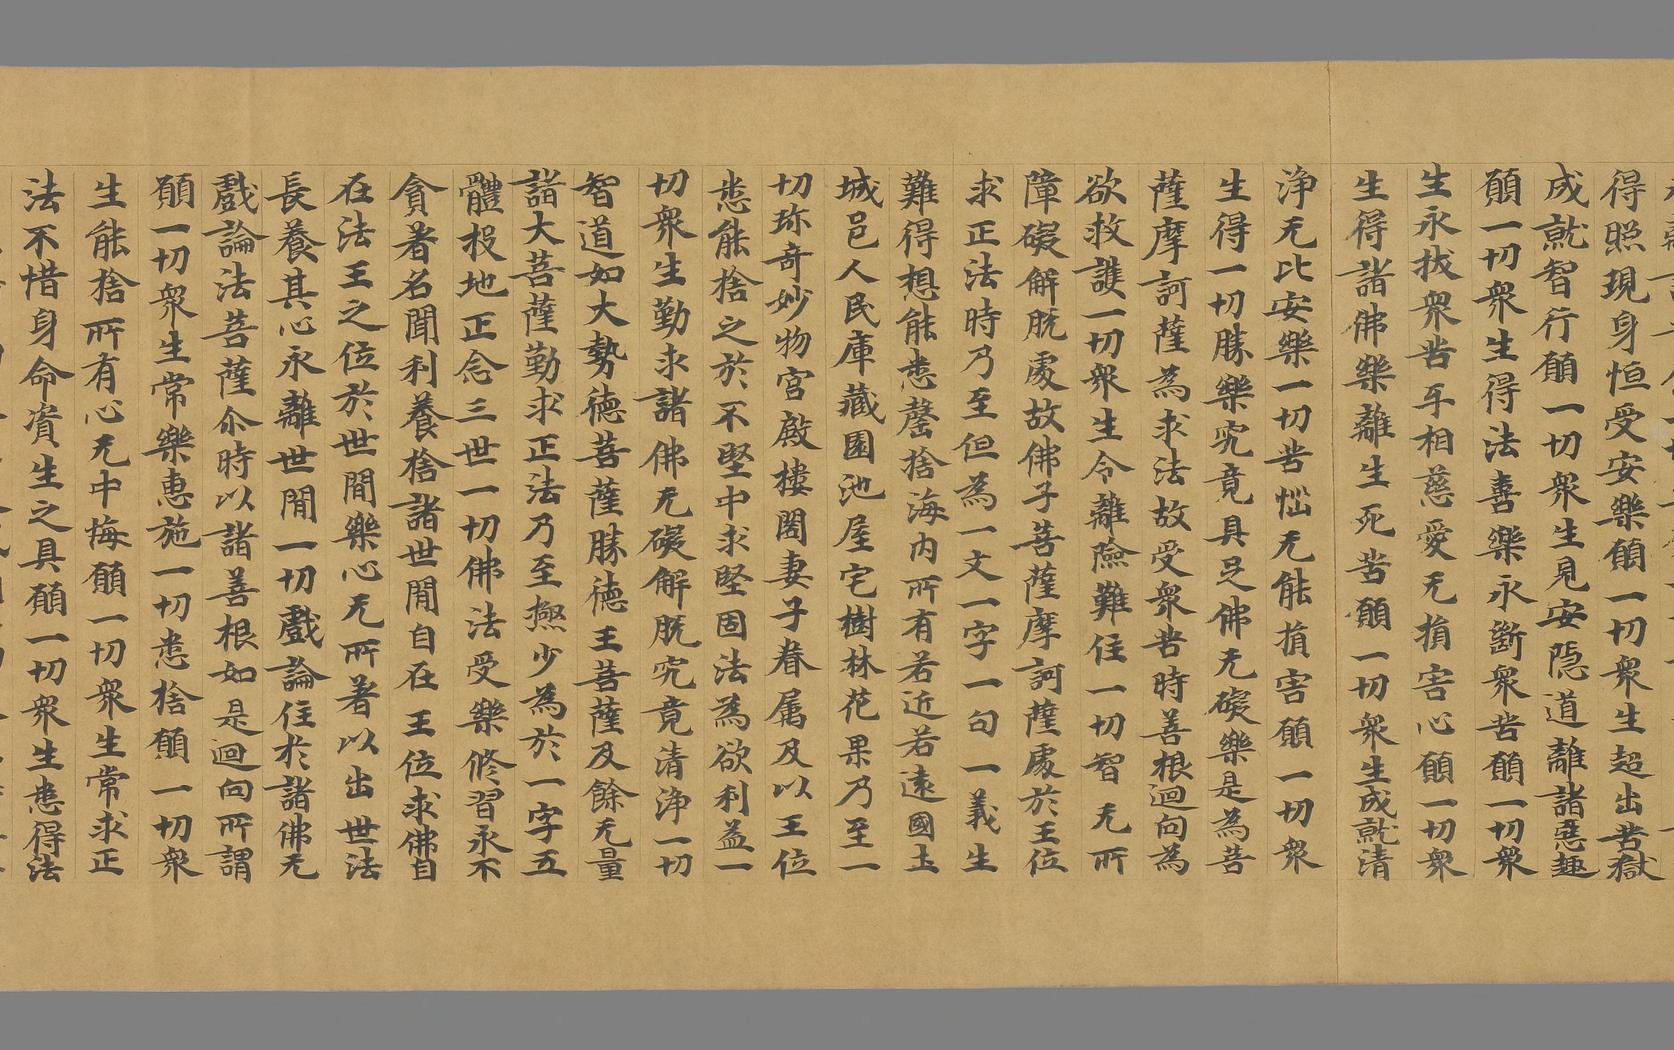 得照現身恒受安樂願一切衆生超出苦獄
成就智行願一切衆生見安隱道離諸惡趣
願一切衆生得法喜樂永斷衆苦願一切衆
生永拔衆苦互相慈愛无損害心願一切衆
生得諸佛樂離生死苦願一切衆生成就清
淨无比安樂一切苦惱无能損害願一切衆
生得一切勝樂究竟具足佛无礙樂是為菩
薩摩訶薩為求法故受衆苦時善根迴向為
欲救護一切衆生令離險難住一切智无所
障礙解脫處故佛子菩薩摩訶薩處於王位
求正法時乃至但為一文一字一句一義生
難得想能悉罄捨海內所有若近若遠國土
城邑人民庫藏園池屋宅樹林花果乃至一
切珎奇妙物宮殿樓閣妻子眷屬及以王位
悉能捨之於不堅中求堅固法為欲利益一
切衆生勤求諸佛无礙解脫究竟清淨一切
智道如大勢德菩薩勝德王菩薩及餘无量
諸大菩薩勤求正法乃至極少為於一字五
體投地正念三世一切佛法受樂修習永不
貪著名聞利養捨諸世間自在王位求佛自
在法王之位於世間樂心无所著以出世法
長養其心永離世間一切戲論住於諸佛无
戲論法菩薩尒時以諸善根如是迴向所謂
願一切衆生常樂惠施一切悉捨願一切衆
生能捨所有心无中悔願一切衆生常求正
法不惜身命資生之具願一切衆生悉得法